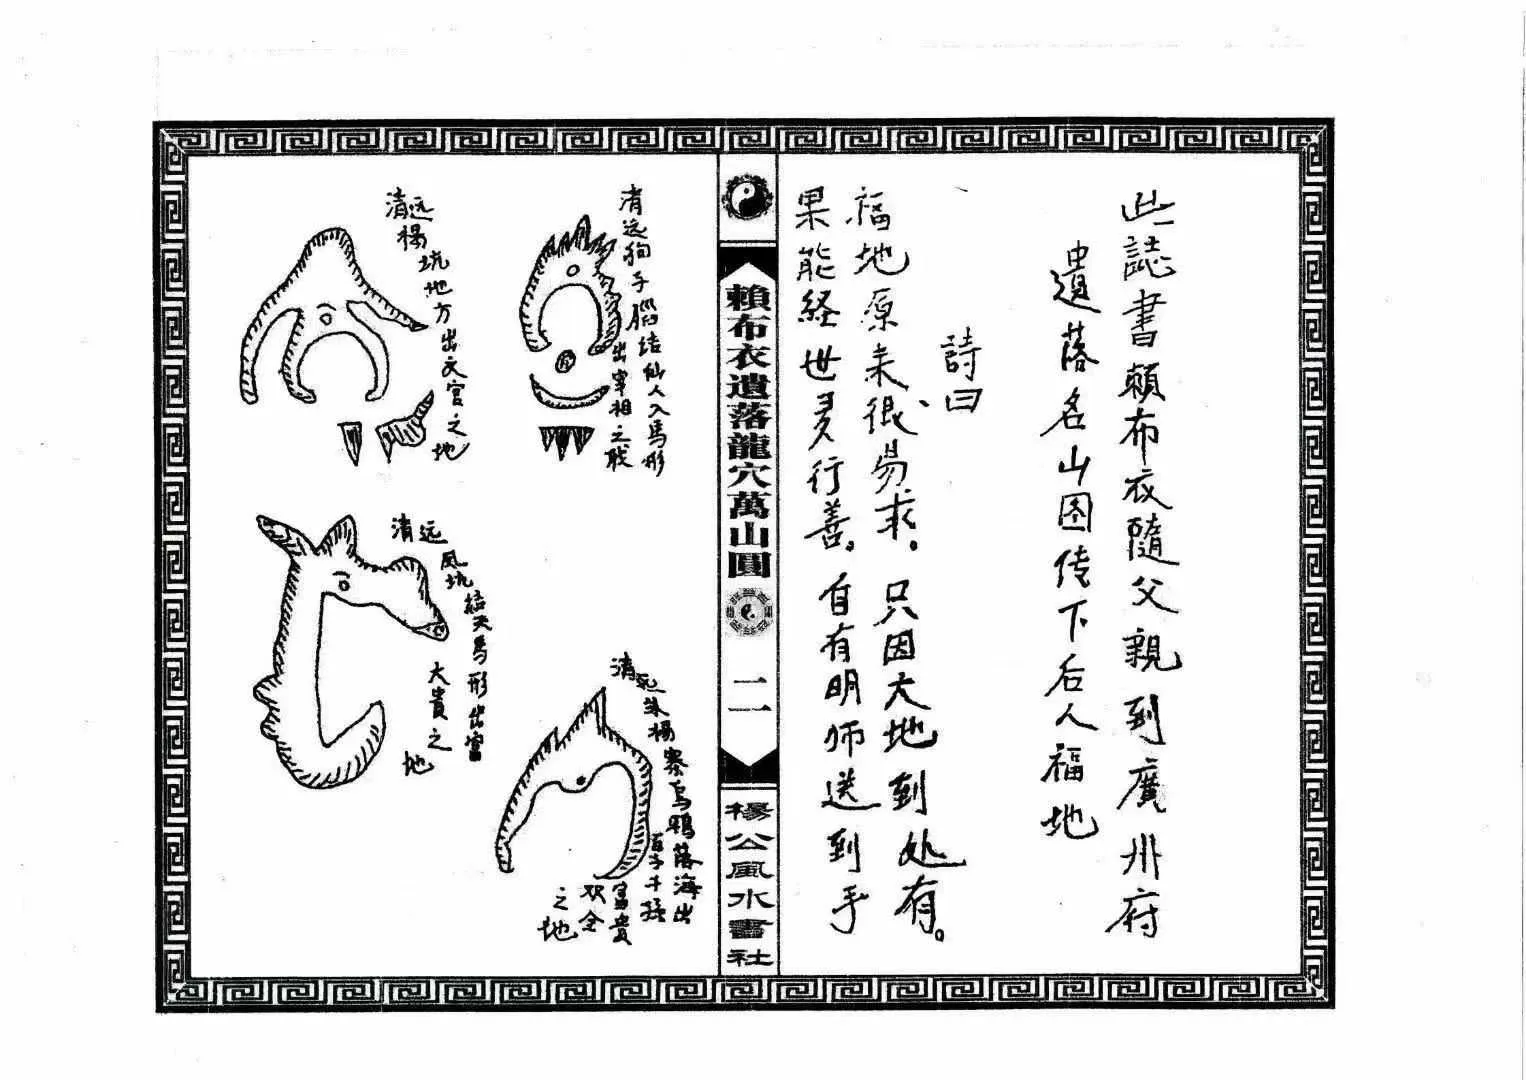 此誌書賴布衣隨父親到廣州府
遺落名山图传下后人福地
詩曰
福地原来很易求。只因大地到处有。
果能経世多行善。自有明师送到手
賴布衣遺落龍穴萬山圓
二
楊公風水書社
清远狗子腦结仙人入馬形
出宰相之
清远楊坑地方出文官之地
清远風坑結天馬形出富
大貴之
地
清远朱楊寨烏鴉落海出
百子千孫
富貴
双全
之地